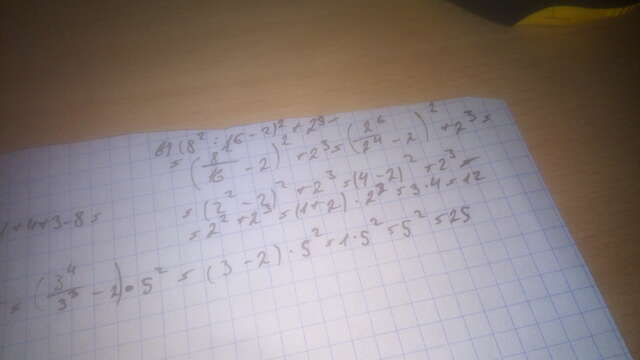 б) (8² : 16 - 2)² + 2³ =
= (8²/16 - 2)² + 2³ = (2⁶/2⁴ - 2)² + 2³ =
= (2² - 2)² + 2³ = (4 - 2)² + 2³ =
= 2² + 2³ = (1 + 2) · 2² = 3 · 4 = 12
1 + 4 + 3 - 8 =
= (3⁴/3³ - 2) · 5² = (3 - 2) · 5² = 1 · 5² = 5² = 25